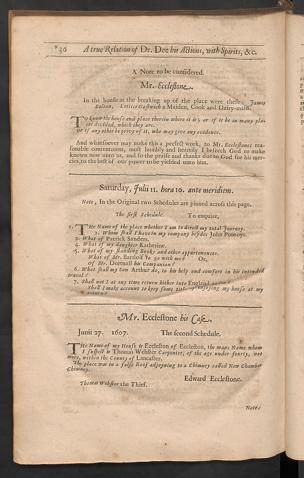 *36 A true Relation of Dr. Dee his Actions, with Spirits, &c.
A Note to be considered.
Mr. Ecclestone.
In the house at the breaking up of the place were these, James
Bolton, Lettice Gastwich a Maiden, Cook and Dairy-maid.
To know the house and place therein where it is, or if it be in many pla-
ces divided, which they are.
Or if any other be privy of it, who may give any evidence.
And whatsoever may make this a perfect work, to Mr. Ecclestones rea-
sonable contentation, most humbly and heartily I beseech God to make
known now unto us, and to the praise and thanks due to God for his mer-
cies, to the best of our power to be yielded unto him.
Saturday, Julii 11. hora 10. ante meridiem.
Note, In the Original two Schedules are pinned across this page.
The first Schedule. To enquire,
1. The Name of the place whither I am to direct my total Journey.
2. Whom shall I have in my company besides John Pontoys.
3. What of Patrick Sanders.
4. What of my daughter Katherine.
5. What of my standing Books and other appurtenances.
What of Mr. Bardolf to go with me? Or,
of Mr. Dortnall his Companion?
6. What shall my son Arthur do, to his help and comfort in his intended
travail?
7. Shall not I at any time return hither into England again?
Shall I make account to keep still possessing my house at my
return?
Mr. Ecclestone his Case.
Junii 27. 1607. The second Schedule.
The Name of my House is Eccleston of Eccleston, the mans Name whom
I suspect is Thomas Webster Carpenter, of the age under fourty, yet
were, within the County of Lancaster.
The place was to a false Roof adjoyning to a Chimney called New Chamber
Chimney.
Edward Ecclestone.
Thomas Webster the Thief.
Note: